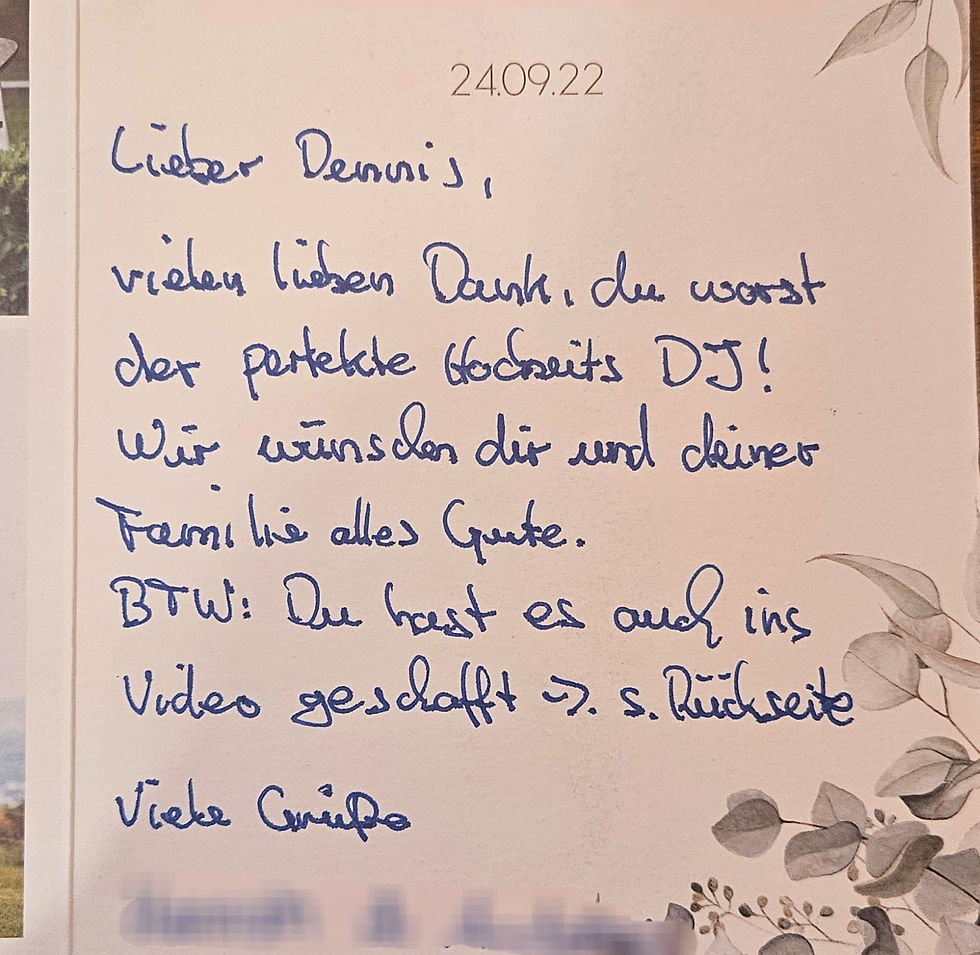 24.09.22
Lieber Dennis,
vielen lieben Dank, du warst
der perfekte Hochzeits DJ!
Wir wünschen dir und deiner
Familie alles Gute.
BTW: Du hast es auch ins
Video geschafft => s. Rückseite
Viele Grüße